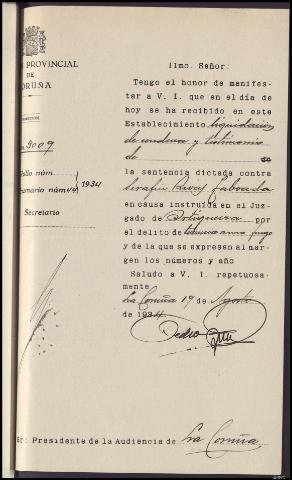 PROVINCIAL
DE
ORUÑA
9009
ollo núm.
umario núm. 44 / 1934
Secretario
Ilmo. Señor:
Tengo el honor de manifes-
tar a V. I. que en el día de
hoy se ha recibido en este
Establecimiento liquidación
de condena y testimonio
de de
la sentencia dictada contra
Serafín Taboada
en causa instruída en el Juz-
gado de Ortigueira por
el delito de tenencia arma fuego
y de la que se expresan al mar-
gen los números y año
Saludo a V. I. repetuosa-
mente
La Coruña 17 de Agosto
de 1934
Pedro
Sr. Presidente de la Audiencia de La Coruña.